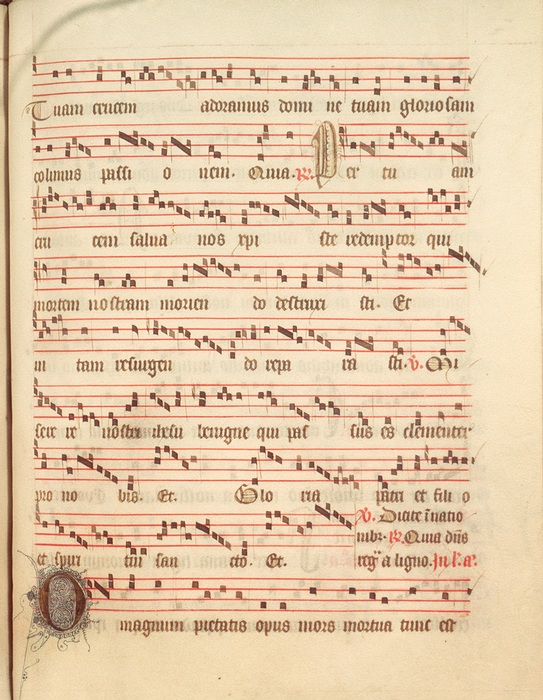 Tuam crucem adoramus domi ne tuam glorio sam
colimus passi o nem. Quia. R. Per tu am
cru cem salua nos xpi ste redemptor qui
mortem nostram morien do destruxi sti. Et
ui tam resurgen do repa ra sti. V. Mi
sere re nostri ihesu benigne qui pas sus es clementer
pro no bis. Et. Glo ria patri et fili o
V. Dicite in natio
nibz. R. Quia dns
et spiri tui san cto. Et. reg a ligno. In l. a.
O magnum pietatis opus mors mortua tunc est